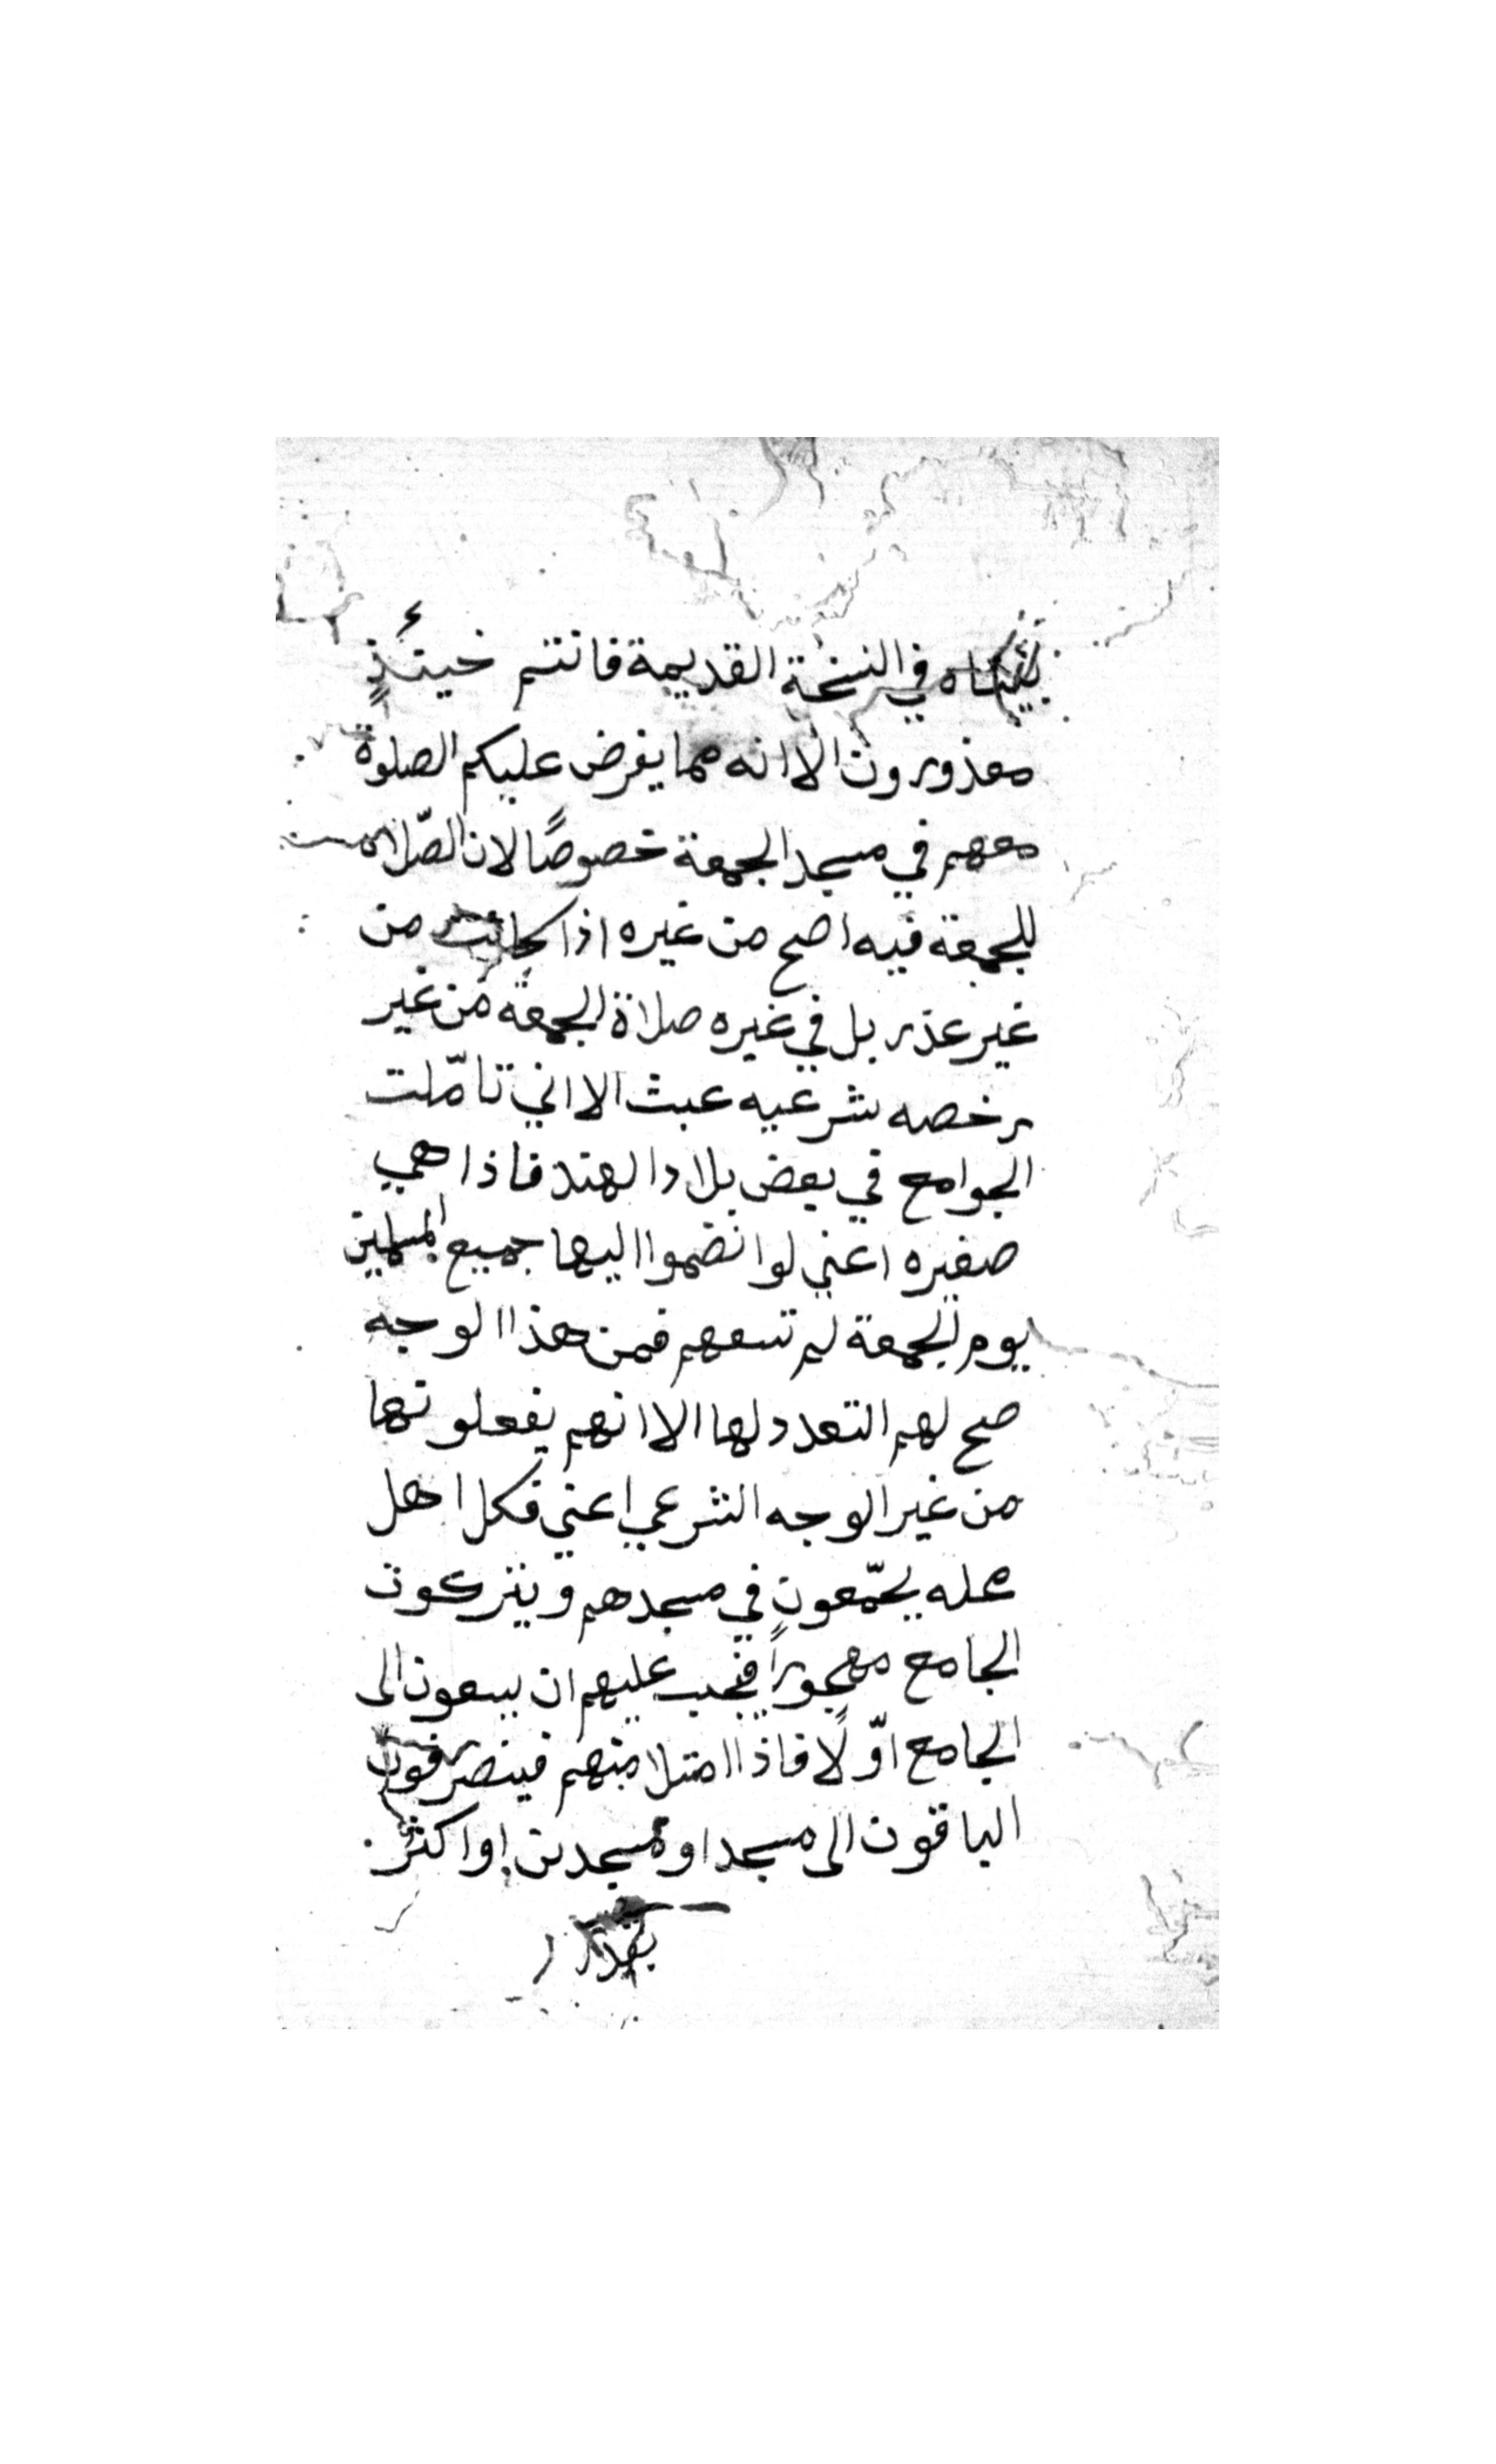 بيناه في النسخة القديمة فانتم حينئذٍ
معذورون الا انه مما يفرض عليكم الصلوة
معهم في مسجد الجمعة خصوصًا لان الصّلاه
للجمعة فيه اصح من غيره اذا كانت من
غير عذر بل في غيره صلاة الجمعة من غير
رخصه شرعيه عبث الا اني تامّلت
الجوامع في بعض بلاد الهند فاذا هي
صغيره اعني لو انضموا اليها جميع المسلمين
يوم الجمعة لم تسعهم فمن هذا الوجه
صح لهم التعدد لها الا انهم يفعلونها
من غير الوجه الشرعي اعني فكل اهل
محله يجمّعون في مسجدهم ويتركون
الجامع مهجورًا فيجب عليهم ان يسعون الى
الجامع اوّلًا فاذا امتلا منهم فينصرفون
الباقون الى مسجد او مسجدين او اكثر
بقدر